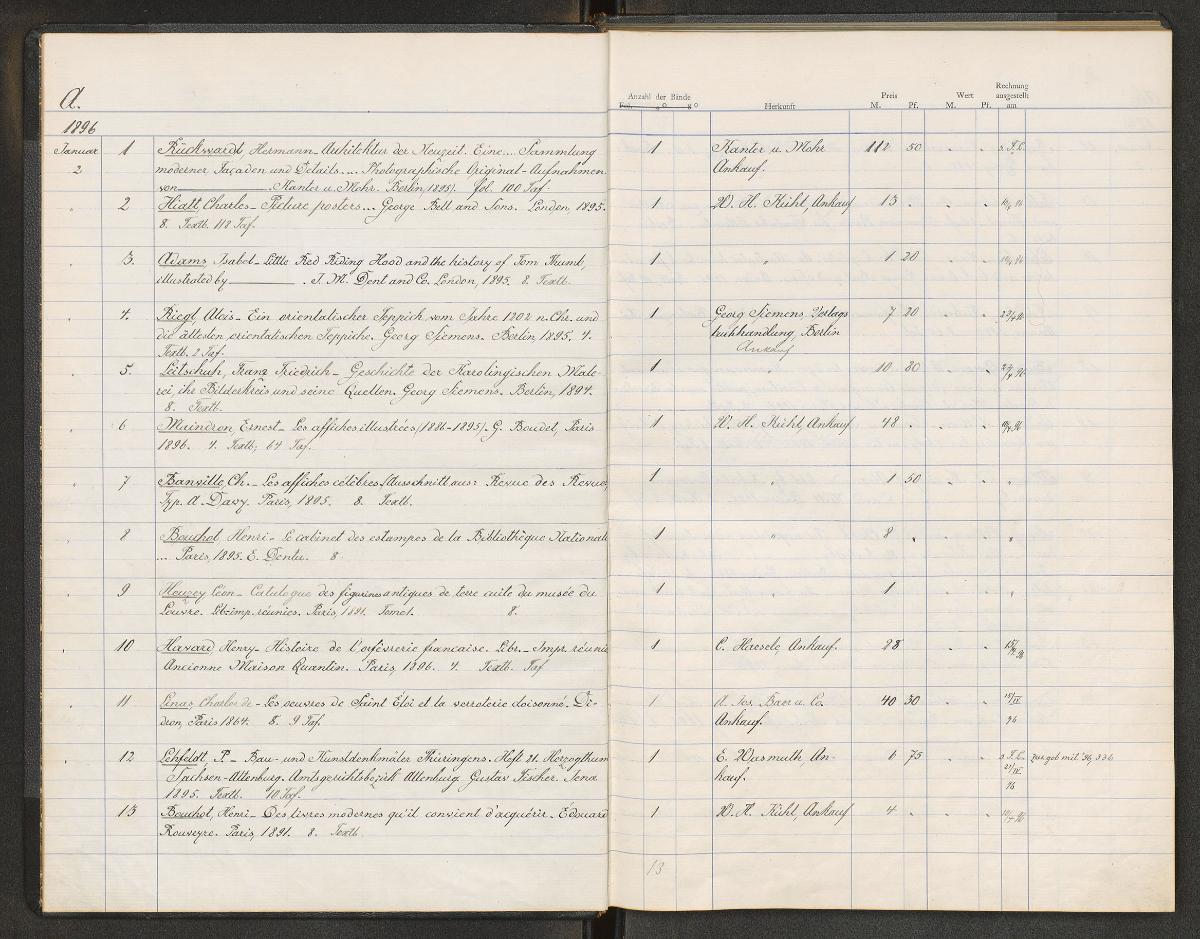 A.
1896
Anzahl der Bände
Fol. 4° 8°
Herkunft
Preis
M. Pf.
Wert
M. Pf.
Rechnung
ausgestellt
am
Januar 1 Rückwardt, Hermann_ Architektur der Neuzeit. Eine... Sammlung 1 Kanter u. Mohr 112 50 . .
2 moderner Façaden und Details.... Photographische Original-Aufnahmen Ankauf.
von ______ . Kanter u. Mohr. Berlin, 1895). fol. 100 Taf.
" 2 Hiatt, Charles_ Picture posters... George Bell and Sons. London, 1895. 1 W. H. Kühl, Ankauf 13 . . .
8. Textb. 112 Taf.
" 3. Adams, Isabel_ Little Red Riding Hood and the history of Tom Thumb, 1 " 1 20 . .
illustrated by ______ . J. M. Dent and Co. London, 1895. 8. Textb.
" 4. Riegl, Alois_ Ein orientalischer Teppich vom Jahre 1202 n. Chr. und 1 Georg Siemens Verlags 7 20 . .
die ältesten orientalischen Teppiche. Georg Siemens. Berlin 1895. 4. buchhandlung, Berlin
Textb. 2 Taf. Ankauf
" 5. Leitschuh, Franz Friedrich_ Geschichte der Karolingischen Male- 1 " 10 80 . .
rei, ihr Bilderkreis und seine Quellen. Georg Siemens. Berlin, 1894.
8. Textb.
" 6 Maindron, Ernest_ Les affiches illustrées (1886-1895). G. Boudet, Paris 1 W. H. Kühl, Ankauf 48 . . .
1896. 4. Textb; 64 Taf.
" 7 Banville, Ch._ Les affiches célèbres. Ausschnitt aus: Revue des Revues, 1 " 1 50 . . "
Typ. A. Davy. Paris, 1895. 8. Textb.
" 8 Bouchot, Henri_ Le cabinet des estampes de la Bibliothèque Nationale 1 " 8 . . . "
... Paris, 1895. E. Dentu. 8
" 9 Heuzey Léon_ Catalogue des figurines antiques de terre cuite du musée du 1 " 1 . . . "
Louvre. Lib-imp. réunies. Paris, 1891. Tome 1. 8.
" 10 Havard, Henry_ Histoire de l'orfèvrerie française. Libr._ Impr. réunies 1 C. Haesele, Ankauf. 28 . .
Ancienne Maison Quantin. Paris, 1896. 4. Textb. Taf
" 11 Linas, Charles de_ Les oeuvres de Saint Éloi et la verroterie cloisonné. Di- 1 A. Jos. Baer u. Co. 40 30 . . 15/IV
dron, Paris 1864. 8. 9 Taf. Ankauf. 96
" 12 Lehfeldt, P._ Bau- und Kunstdenkmäler Thüringens. Heft 21. Herzogthum 1 E. Wasmuth, An- 6 75 . . zus. geb mit '96, 336
Sachsen-Altenburg. Amtsgerichtsbezirk Altenburg. Gustav Fischer. Jena kauf. 21/IV
1895. Textb. 10 Taf. 96
" 13 Bouchot, Henri_ Des livres modernes qu'il convient d'acquérir. Édouard 1 W. H. Kühl, Ankauf 4 . . .
Rouveyre. Paris, 1891. 8. Textb.
13